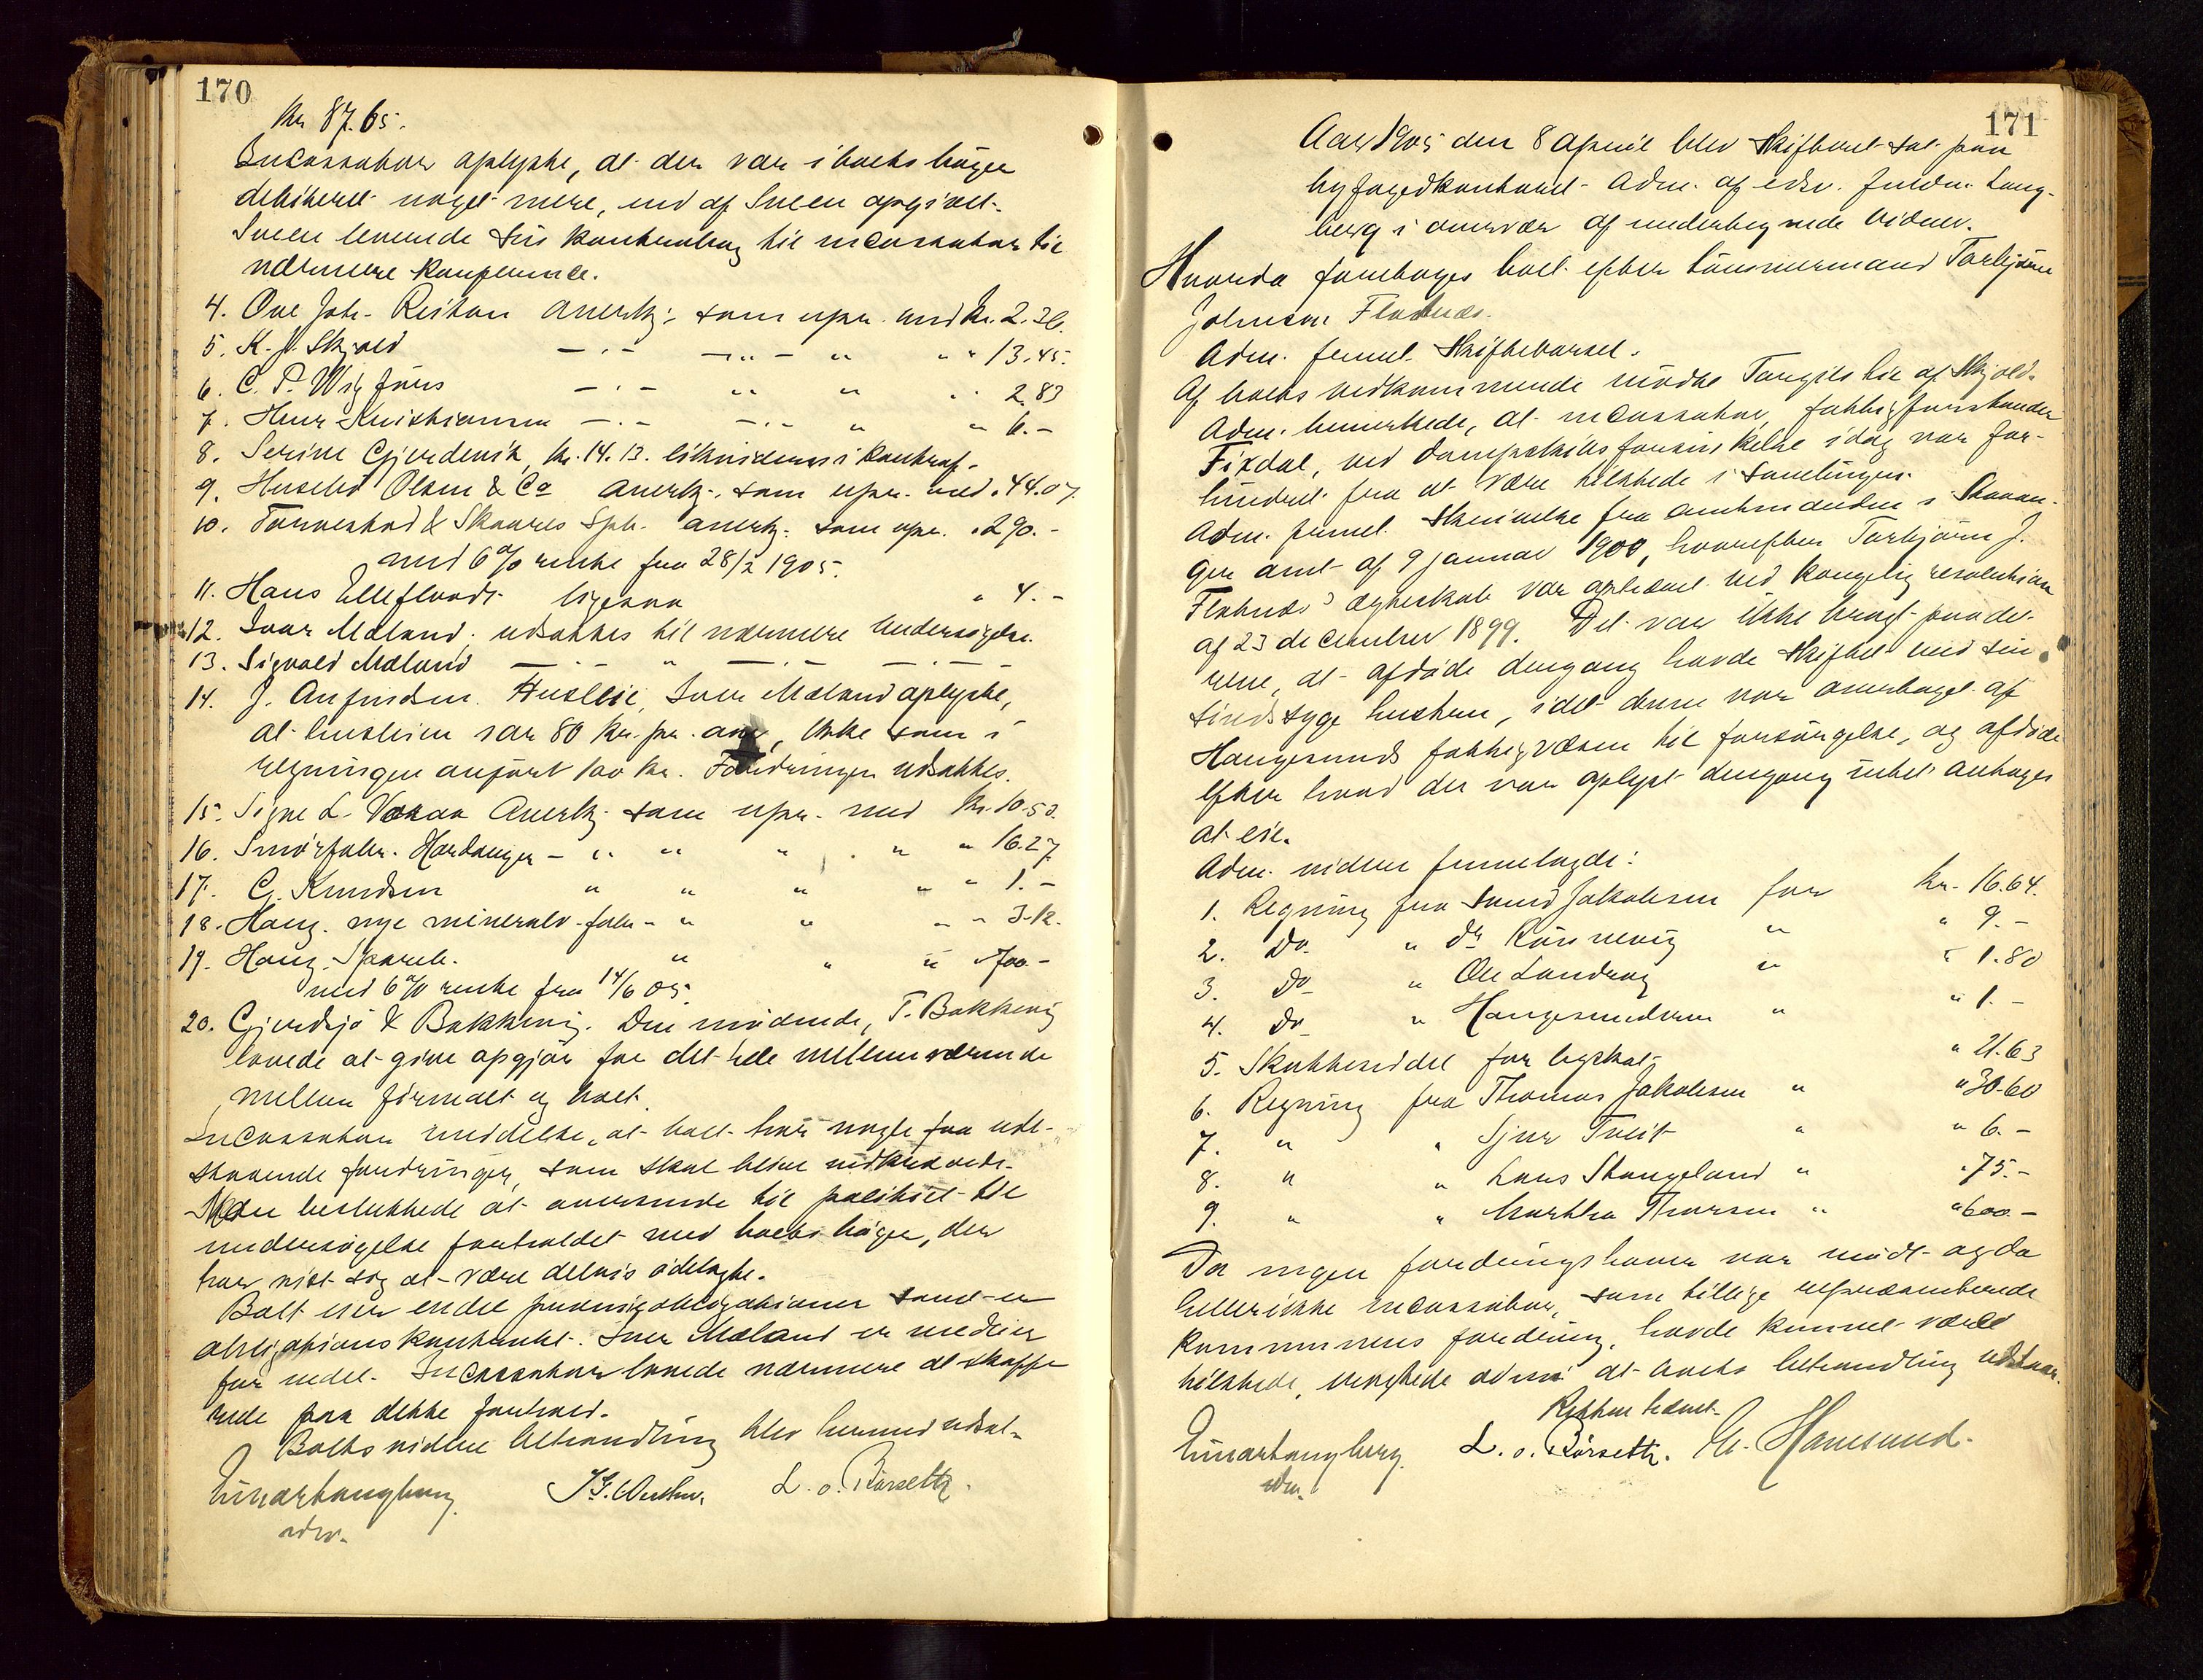 170
Kr 87.65.
Incassator oplyste, at der var i boets bøger
debiteret noget mere, end af Sveen opgivet.
Sveen leverede sin kontrabog til incassator til
nærmere konference.
4. Ove Joh. Reistan anerkj. som upr. med kr. 2.36.
5. K. J. Skjold — . — — „ — „ „ „ 13.45.
6. C. P. Wigførs — . — „ „ „ 2.83
7. Henr Kristiansen — . — — . — „ „ 6.-
8. Serine Gjerdevik, kr. 14.13. likvideres i kontraf.
9. Huseby Olsen & Co anerkj. som upr. med „ 44.07.
10. Torvestad & Skaares Spb. anerkj. som upr. „ 290.-
med 6 % rente fra 28/2 1905.
11. Hans Elleflaadt ligesaa „ 4.-
12. Ivar Mæland. udsattes til nærmere undersøgelse.
13. Sigvald Mæland — . — „ — . — — . — —
14. J. Anfindsen. Husleie, Iver Mæland oplyste,
at husleien var 80 kr. pr. aar, ikke som i
regningen anført 100 kr. Fordringen udsattes.
15. Signe L. Vaaga Anerkj. som upr. med kr. 10.50.
16. Smørfabr. Hardanger — „ „ „ „ „ 16.27
17. G. Knudsen „ „ „ „ „ 1.-
18. Haug. nye mineralv. fabr. — „ „ „ „ 3.12.
19. Haug. Spareb. „ „ „ „ 700.-
med 6 % rente fra 14/6 05.
20. Gjerdsjø & Bakkevig. Den mødende, T. Bakkevig
lovede at give opgjør for det hele mellemværende
mellem firmaet og boet.
Incassator meddelte, at boet har nogle faa ude-
staaende fordringer, som skal blive inddrevet.
Man besluttede at oversende til politiet til
undersøgelse forholdet med boets bøger, der
har vist sig at være delvis ødelagte.
Boet eier endel præmieobligationer samt en
obligationskontrakt. Iver Mæland er medeier
for endel. Incassator lovede nærmere at skaffe
rede paa dette forhold.
Boets videre behandling blev hermed udsat.
Einar Langberg L. o. Rørsetth.
edsv.
171
Aar 1905 den 8 April blev skifteret sat paa
byfogedkontoret. Adm. af edsv. fuldm. Lang-
berg i overvær af underteg nede vidner.
Hvorda foretoges boet efter tømmermand Torbjørn
Johnson Flatnæs.
Adm. fremel. skiftevarsel.
Af boets vedkommende mødte Tangits lie af Skjold.
Adm. bemerkede, at incassator, fattigforstander
Fixdal, ved dampskibsforsinkelse idag var for-
hindret fra at være tilstede i samlingen.
Adm. fremel. skrivelse fra amtmanden i Stavan-
ger amt af 9 januar 1900, hvorefter Torbjørn J.
Flatnæs's egteskab var opløst ved kongelig resolution
af 23 december 1899. Det var ikke bragt paa det
rene, at afdøde dengang havde skiftet med sin
sindssyge hustru, idet denne var overtaget af
Haugesunds fattigvæsen til forsørgelse, og afdøde
efter hvad der var oplyst dengang intet antoges
at eie.
Adm. videre fremlagde:
1. Regning fra Svend Jakobsen for kr. 16.64.
2. Do. „ dr Rønnevig „ „ 9.-
3. Do „ Ole Landaag „ „ 1.80
4. Do „ Haugesunderen „ „ 1.-
5. Skatteseddel for byskat „ 21.63
6. Regning fra Thomas Jakobsen „ „ 30.60
7. „ „ Sjur Tveit „ „ 6.-
8. „ „ Lars Stangeland „ „ 75.-
9. „ „ Martha Thorsen „ „ 600.-
Da ingen fordringshaver var mødt og da
heller ikke incassator, som tillige repræsenterede
kommunens fordring, havde kunnet være
tilstede, besluttede adm. at boets behandling udstaar.
Retten hævet.
Einar Langberg. L. o. Rørsetth. M. Hamsund.
edsv.